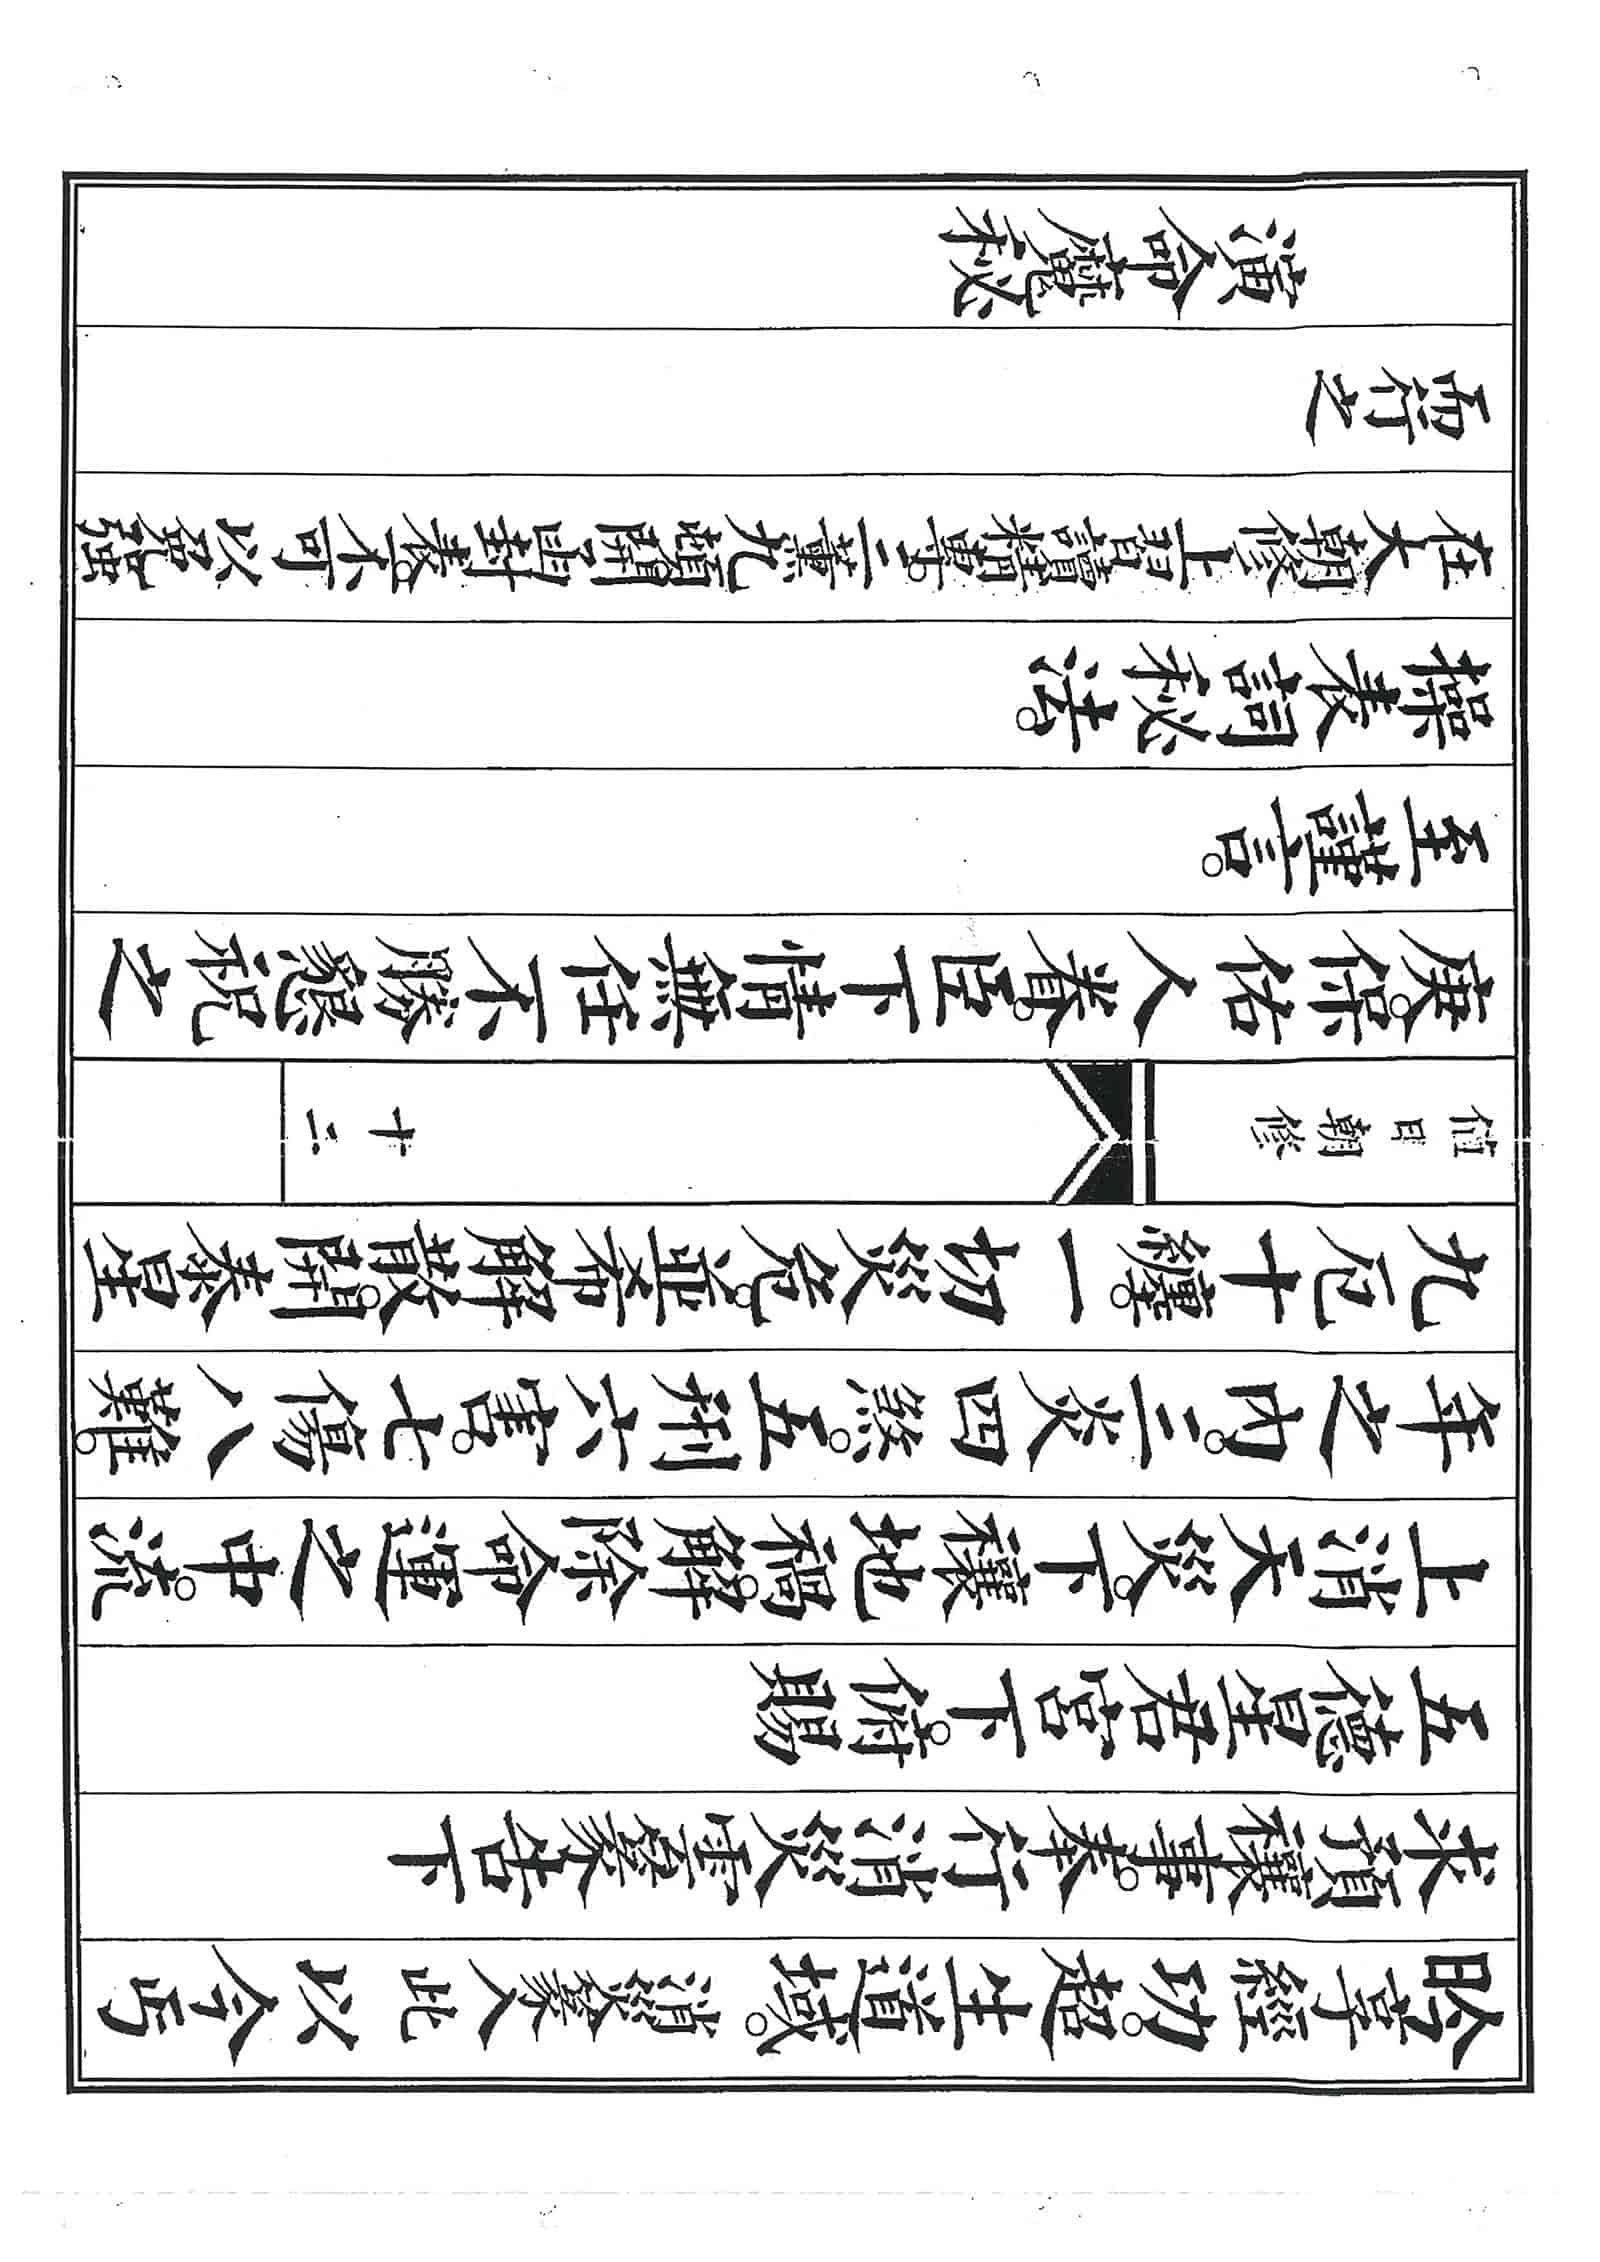 享經功。超生道域。人此以今焉
求預禳事。奉行消災篆告下
五德星君宮下。俯賜
上消天災。下禳地禍。解除命運之中。流
年之內。三災四煞。五刑六害。七傷八難。
九厄十纏。一切災危。並希解散。開泰星
值日朝修
十二
庚。保佑人眷。臣下情無任不勝懇祝之
至謹言。
操表詞秘法。
在大朝修上習讀精專。二薰九開山封表。不可以免強
而行之
演命魔秘